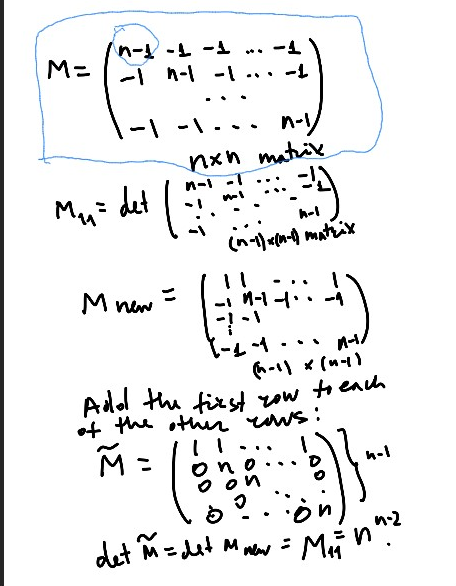 M = ( n-1 -1 -1 ... -1
-1 n-1 -1 ... -1
...
-1 -1 ... n-1 )
n×n matrix
M₁₁ = det ( n-1 -1 ... -1
-1 n-1 ... -1
... n-1
-1 ... )
(n-1)×(n-1) matrix
M new = ( 1 1 ... 1
-1 n-1 -1 ... -1
-1 -1
⋮
-1 -1 ... n-1 )
(n-1) × (n-1)
Add the first row to each
of the other rows:
M̃ = ( 1 1 ... 1
0 n 0 ... 0
0 0 n 0
0 ...
0 ... 0 n ) } n-1
det M̃ = det M new = M₁₁ = n^(n-2).